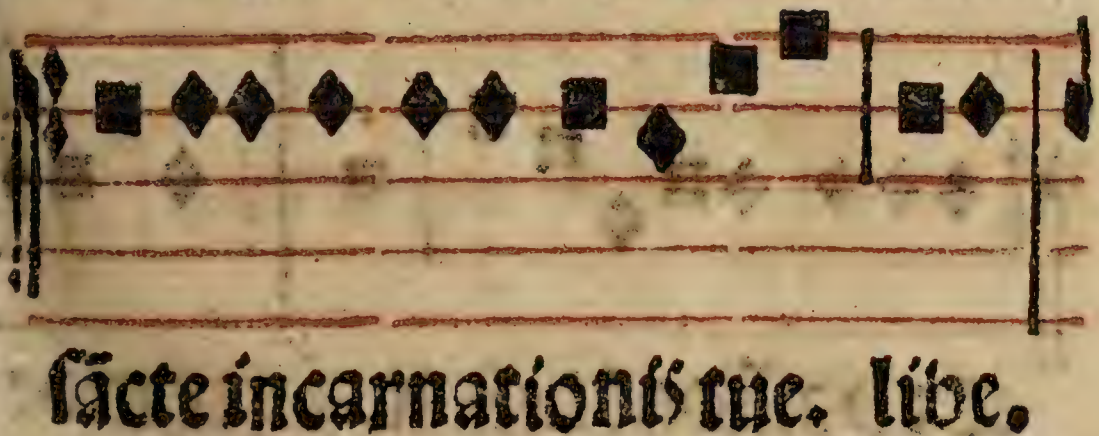 sācte incarnationis tue. libe.